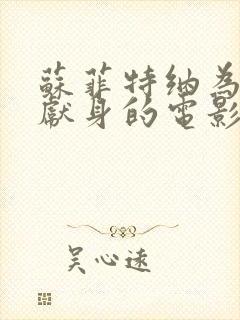 蘇菲特納為
獻身的電影
吳心遠